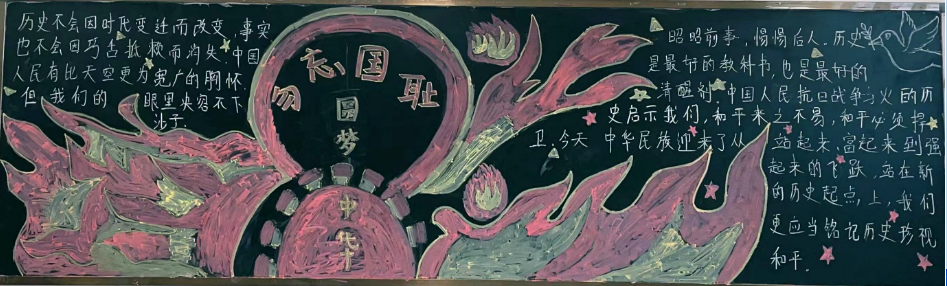 历史不会因时代变迁而改变,事实
也不会因巧舌抵赖而消失,中国
人民有比天空更为宽广的胸怀
但,我们的 眼里决容不下
沙子.
勿忘国耻
圆梦
中华
昭昭前事,惕惕后人.历史
是最好的教科书,也是最好的
清醒剂,中国人民抗日战争与火的历
史启示我们,和平来之不易,和平必须捍
卫.今天 中华民族迎来了从 站起来,富起来到强
起来的飞跃,站在新
的历史起点,上,我们
更应当铭记历史珍视
和平.